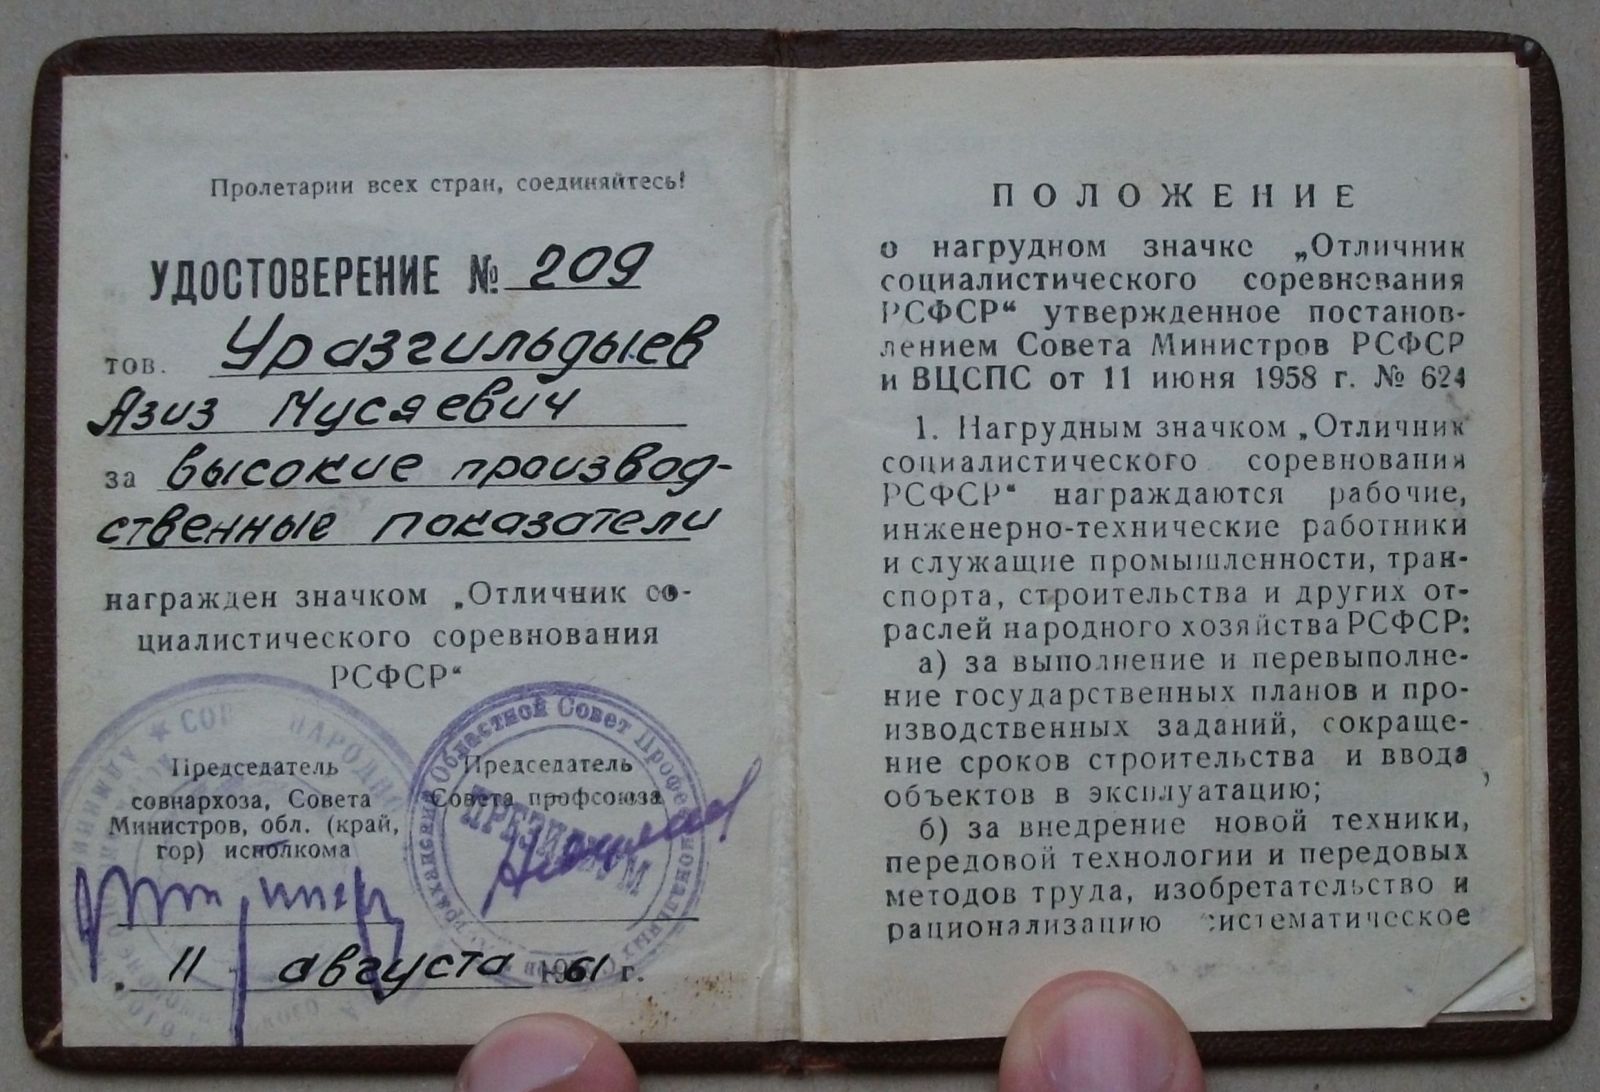 Пролетарии всех стран, соединяйтесь!
УДОСТОВЕРЕНИЕ № 209
тов. Уразгильдыев
Азиз Мусяевич
за высокие производ-
ственные показатели
награжден значком „Отличник со-
циалистического соревнования
РСФСР“
Председатель
совнархоза, Совета
Министров, обл. (край,
гор) исполкома
Председатель
Совета профсоюза
Областной Совет Профессиональных
ПРЕЗИДИУМ
„ 11 " августа 1961 г.
ПОЛОЖЕНИЕ
о нагрудном значке „Отличник
социалистического соревнования
РСФСР“ утвержденное постанов-
лением Совета Министров РСФСР
и ВЦСПС от 11 июня 1958 г. № 624
1. Нагрудным значком „Отличник
социалистического соревнования
РСФСР“ награждаются рабочие,
инженерно-технические работники
и служащие промышленности, тран-
спорта, строительства и других от-
раслей народного хозяйства РСФСР:
а) за выполнение и перевыполне-
ние государственных планов и про-
изводственных заданий, сокраще-
ние сроков строительства и ввода
объектов в эксплуатацию;
б) за внедрение новой техники,
передовой технологии и передовых
методов труда, изобретательство и
рационализацию систематическое